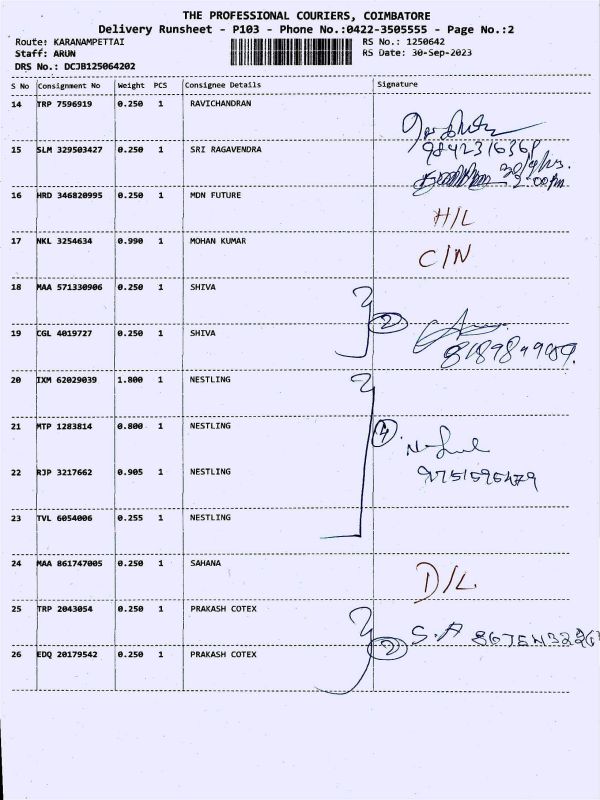 THE PROFESSIONAL COURIERS, COIMBATORE
Delivery Runsheet - P103 - Phone No.:0422-3505555 - Page No.:2
Route: KARANAMPETTAI RS No.: 1250642
Staff: ARUN RS Date: 30-Sep-2023
DRS No.: DCJB125064202
S No Consignment No Weight PCS Consignee Details Signature
14 TRP 7596919 0.250 1 RAVICHANDRAN
15 SLM 329503427 0.250 1 SRI RAGAVENDRA
16 HRD 346820995 0.250 1 MDN FUTURE H/L
17 NKL 3254634 0.990 1 MOHAN KUMAR C/N
18 MAA 571330906 0.250 1 SHIVA
2
19 CGL 4019727 0.250 1 SHIVA
20 IXM 62029039 1.800 1 NESTLING
21 MTP 1283814 0.800 1 NESTLING 4
22 RJP 3217662 0.905 1 NESTLING 9751595479
23 TVL 6054006 0.255 1 NESTLING
24 MAA 861747005 0.250 1 SAHANA D/L
25 TRP 2043054 0.250 1 PRAKASH COTEX S.A
2
26 EDQ 20179542 0.250 1 PRAKASH COTEX